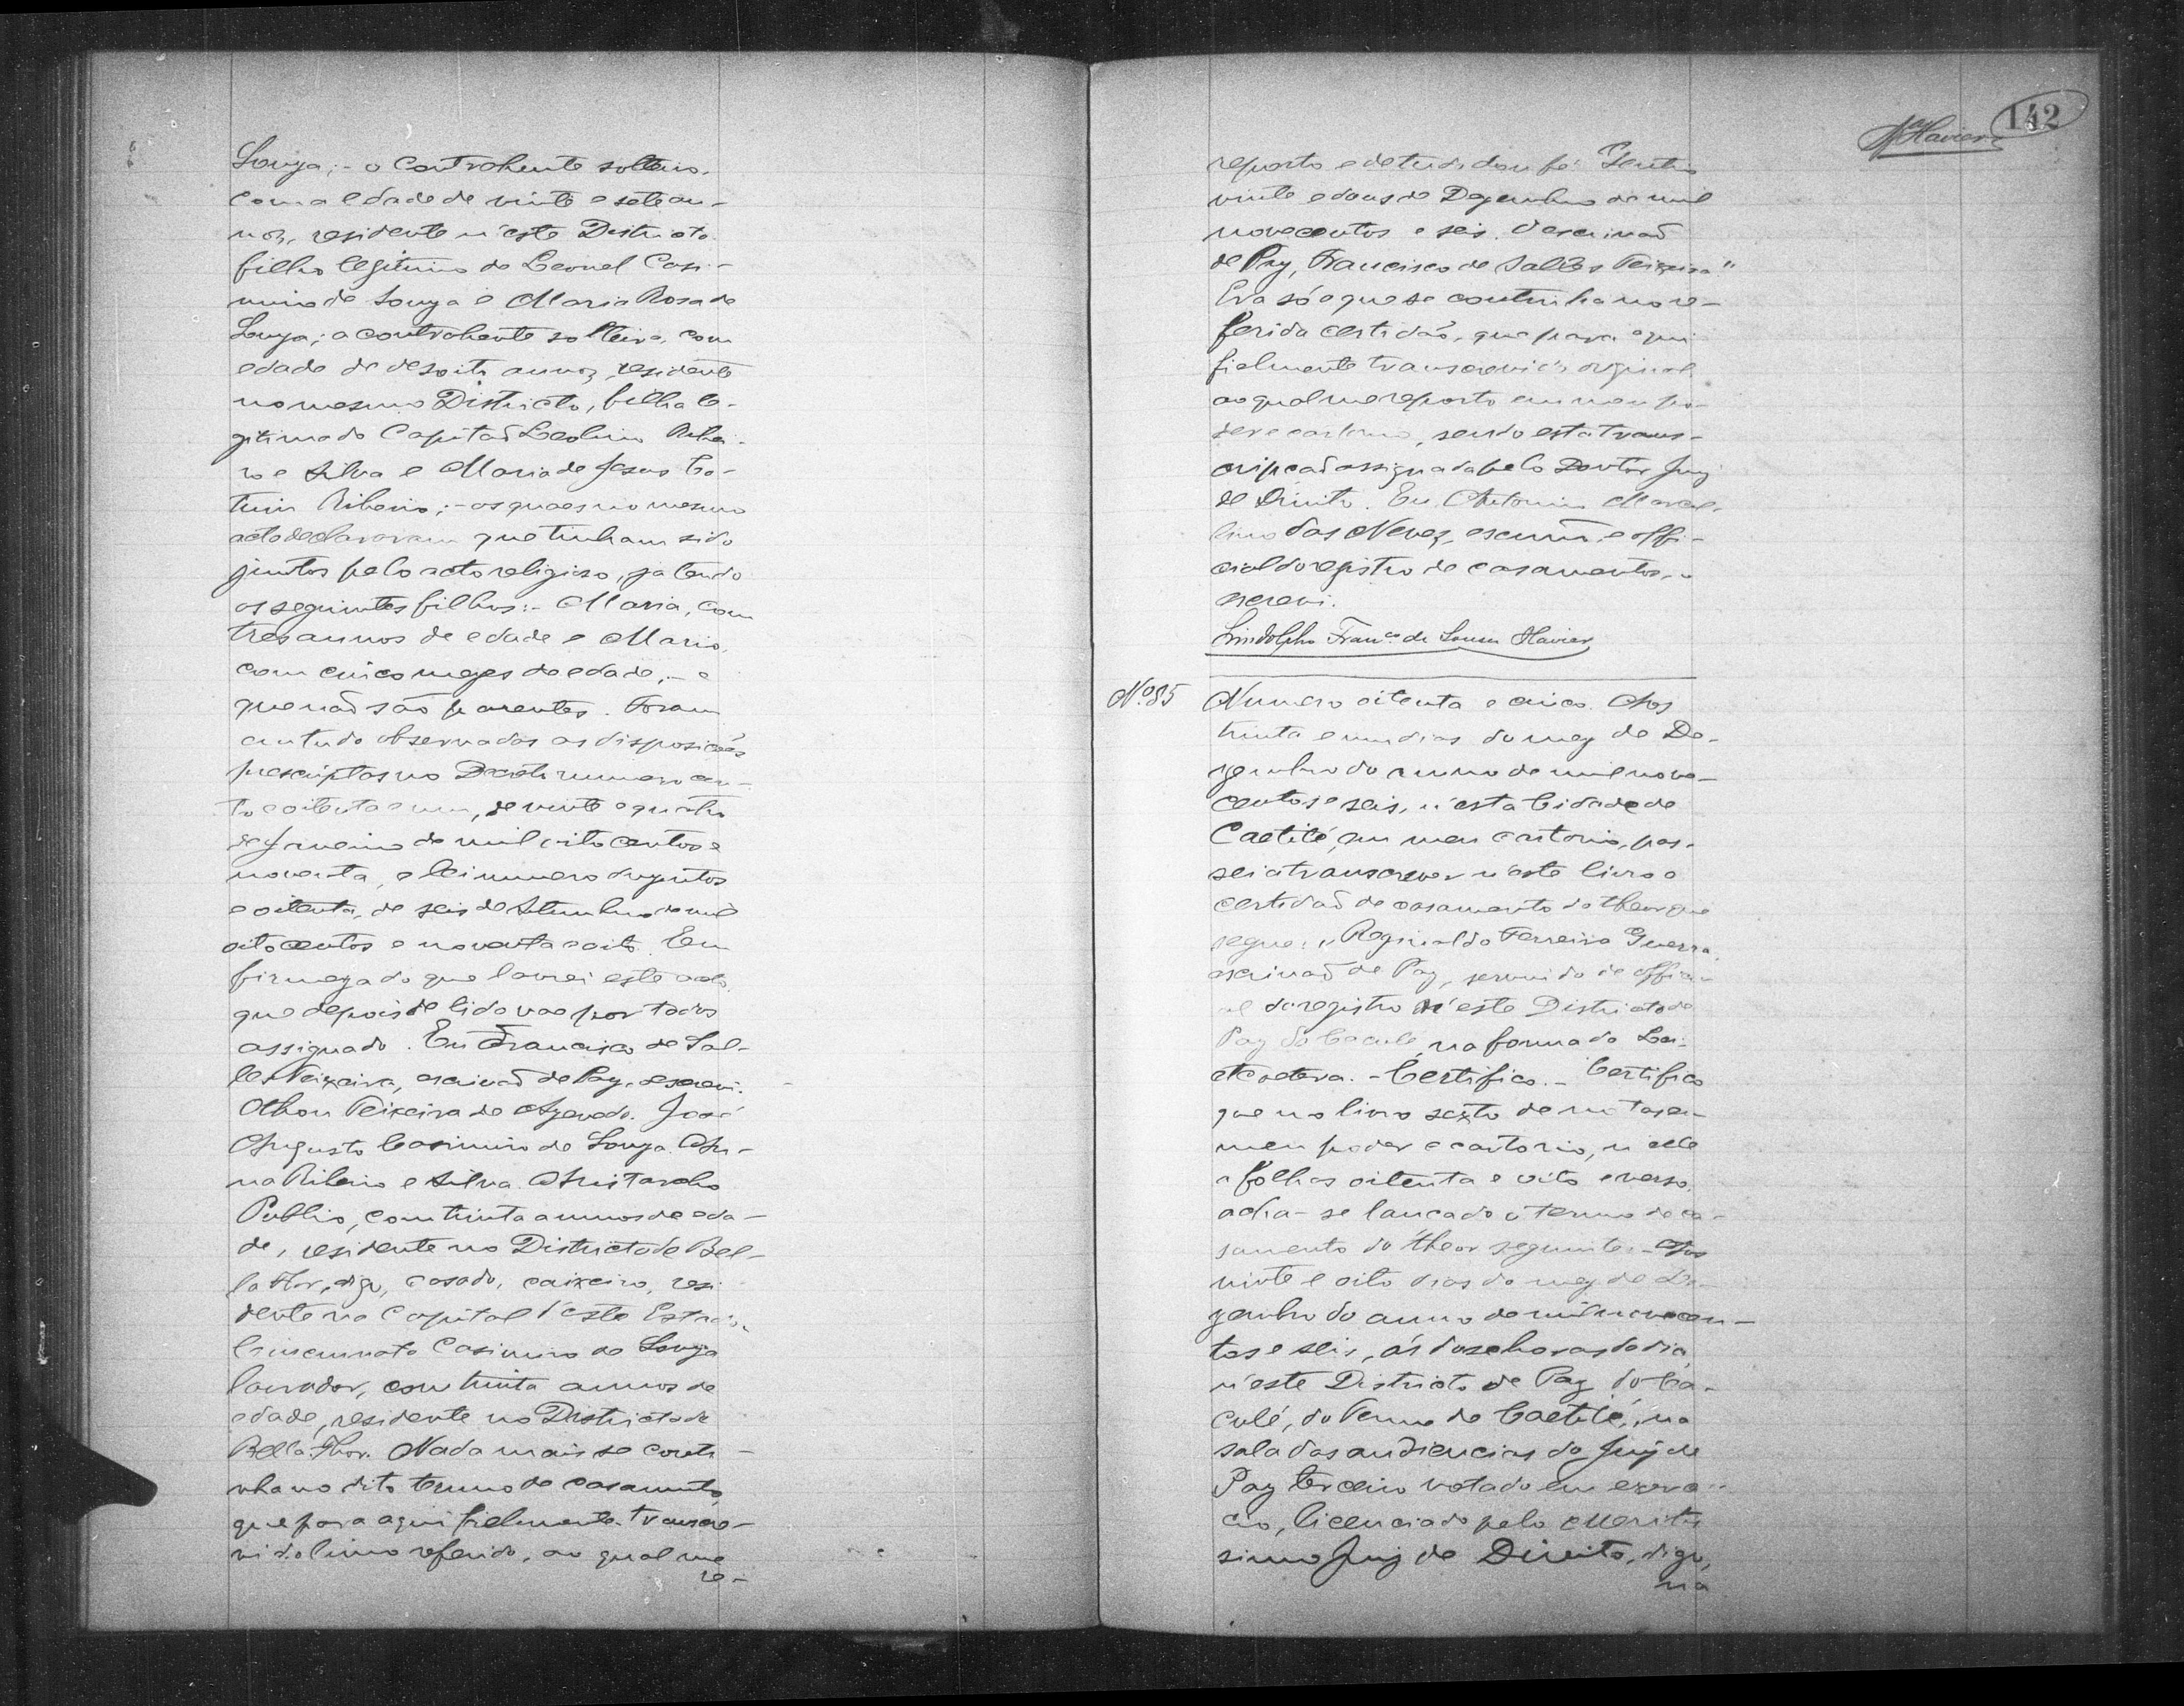 Souza; - o contrahente solteiro,
com a edade de vinte e sete an-
nos, residente n'este Districto
filho legitimo de Leonel Casi-
miro de Souza e Maria Rosa de
Souza; a contrahente solteira, com
edade de desoito annos, residente
no mesmo Districto, filha le-
gitima do Capitaõ Leolino Ribei-
ro e Silva e Maria de Jesus
Ribeiro; - os quaes no mesmo
acto declararam que tinham sido
juntos pelo acto religioso, ja tendo
os seguintes filhos: - Maria, com
tres annos de edade e Mario,
com cinco mezes de edade, - e
que naõ são parentes. Foram
em tudo observadas as disposicões
prescriptas no Decreto numero cen-
to e oitenta e um, de vinte e quatro
de Janeiro de mil oito centos e
noventa, e lei numero duzentos
e oitenta, de seis de Setembro de mil
oito centos e noventa e oito. Em
firmeza do que lavrei este acto
que depois de lido vae por todos
assignado. Eu Francisco de Sal-
les Teixeira, escrivaõ de Paz, escrevi.
Othon Teixeira de Azevedo. José
Augusto Casimiro de Souza. An-
na Ribeiro e Silva. Aristarcho
Publio, com trinta annos de eda-
de, residente no Districto de Bel-
la Flor, digo, casado, caixeiro, resi-
dente na Capital d'este Estado,
Cincinnato Casimiro de Souza
lavrador, com trinta annos de
edade, residente no Districto de
Bella Flor. Nada mais se conti-
nha no dito termo de casamento,
que para aqui fielmente transcre-
vi do livro referido, ao qual me
re-
142
Xavier
reporto e de tudo dou fé. Gentio
vinte e dous de Dezembro de mil
novecentos e seis. O escrivaõ
de Paz, Francisco de Salles Teixeira"
Era só o que se continha na re-
ferida certidaõ, que para aqui
fielmente transcrevi do original
ao qual me reporto em meu po-
der e cartorio, sendo esta trans-
cripcaõ assignada pelo Doutor Juiz
de Direito. Eu, Antonio Marcel-
lino das Neves, escrivaõ e offi-
cial do registro de casamentos, o
escrevi.
Lindolpho Franco de Sousa Xavier
Nº 85 Numero oitenta e cinco. Aos
trinta e um dias do mez de De-
zembro do anno de mil nove-
centos e seis, n'esta Cidade de
Caetité, em meu cartorio, pas-
sei a transcrever n'este livro a
certidaõ de casamento do theor que
segue: "Reginaldo Ferreira Guerra,
escrivaõ de Paz, servindo de offici-
al do registro n'este Districto de
Paz do Caculé, na forma da Lei
etcoetera. - Certifico. - Certifico
que no livro sexto de notas em
meu poder e cartorio, n'elle
a folhas oitenta e oito e verso,
acha-se lancado o termo de ca-
samento do theor seguinte: - Aos
vinte e oito dias do mez de De-
zembro do anno de mil novecen-
tos e seis, ás dose horas do dia,
n'este Districto de Paz do Ca-
culé, do Termo de Caetité, na
sala das audiencias do Juiz de
Paz terceiro votado em exerci-
cio, licenciado pelo Meritis
simo Juiz de Direito, digo,
na